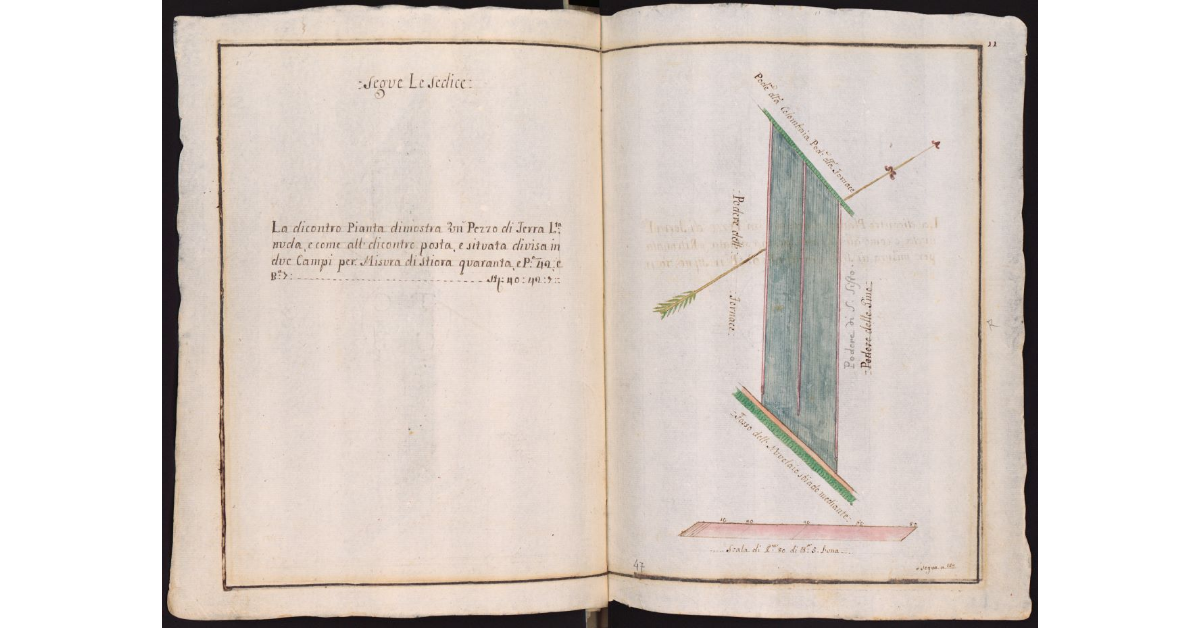 :Segve Le Sedice:
La dicontro Pianta dimostra Uni Pezzo di Terra L.to
nuda, e come all: dicontro posta, e situata divisa in
due Campi per Misura di Stiora quaranta, e P.e 42, e
B.a 3: St: 40: 42: 3::
11
Pode.re alla Colombaia Pod.re alle Fornace
:Podere delle Fornace:
Podere di S. Sisto.
:Podere delle Sine:
:Fosso dell: Strade mediante:
10 20 80
Scala di P. 80 di B.
47
segue n. 12